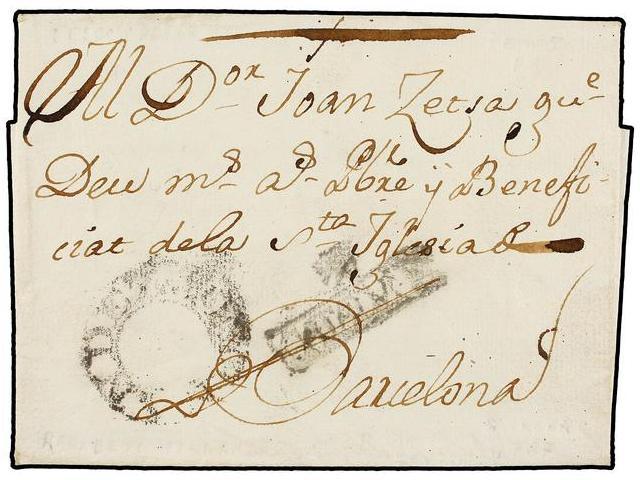 Al D.or Joan Zetsa que
Deu m.s a.s Pbre ÿ Benefi-
ciat de la S.ta Iglesia d
Barcelona